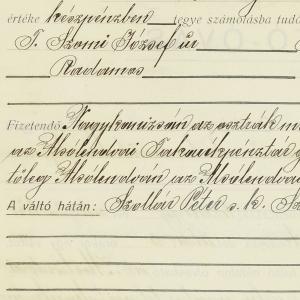 értéke készpénzben tegye számolásba
T. Szomi József úr
Radamos
Fizetendő Nagykanizsán az osztrák m
az Alsólendvai Takarékpénztár
tőleg Alsólendván az Alsólendvai
A váltó hátán: Szollár Péter s. k.